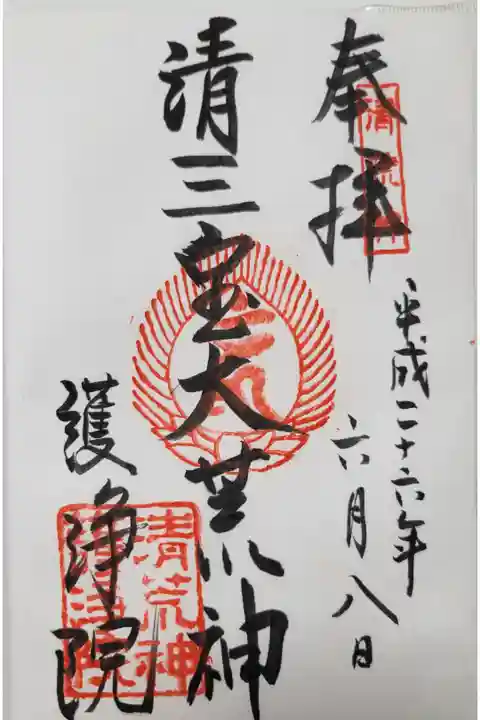 奉拝
平成二十六年
六月八日
清三宝大荒神
護浄院
清荒神
護浄院